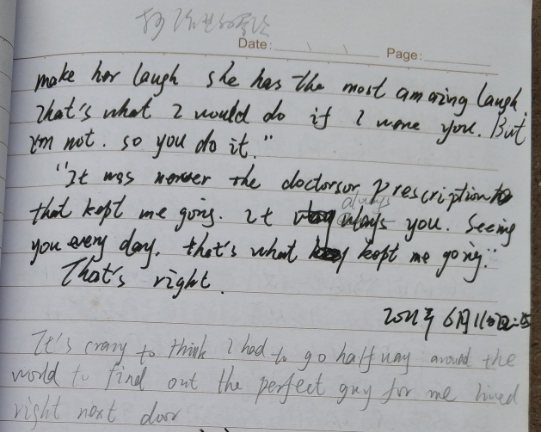 Date: Page:
make her laugh she has the most amazing laugh
that's what I would do if I were you. But
I'm not. so you do it."
"It was never the doctorsor prescription
that kept me going. It always you. Seeing
you every day. that's what kept me going."
That's right.
2021年6月11日
It's crazy to think I had to go half way around the
world to find out the perfect guy for me lived
right next door